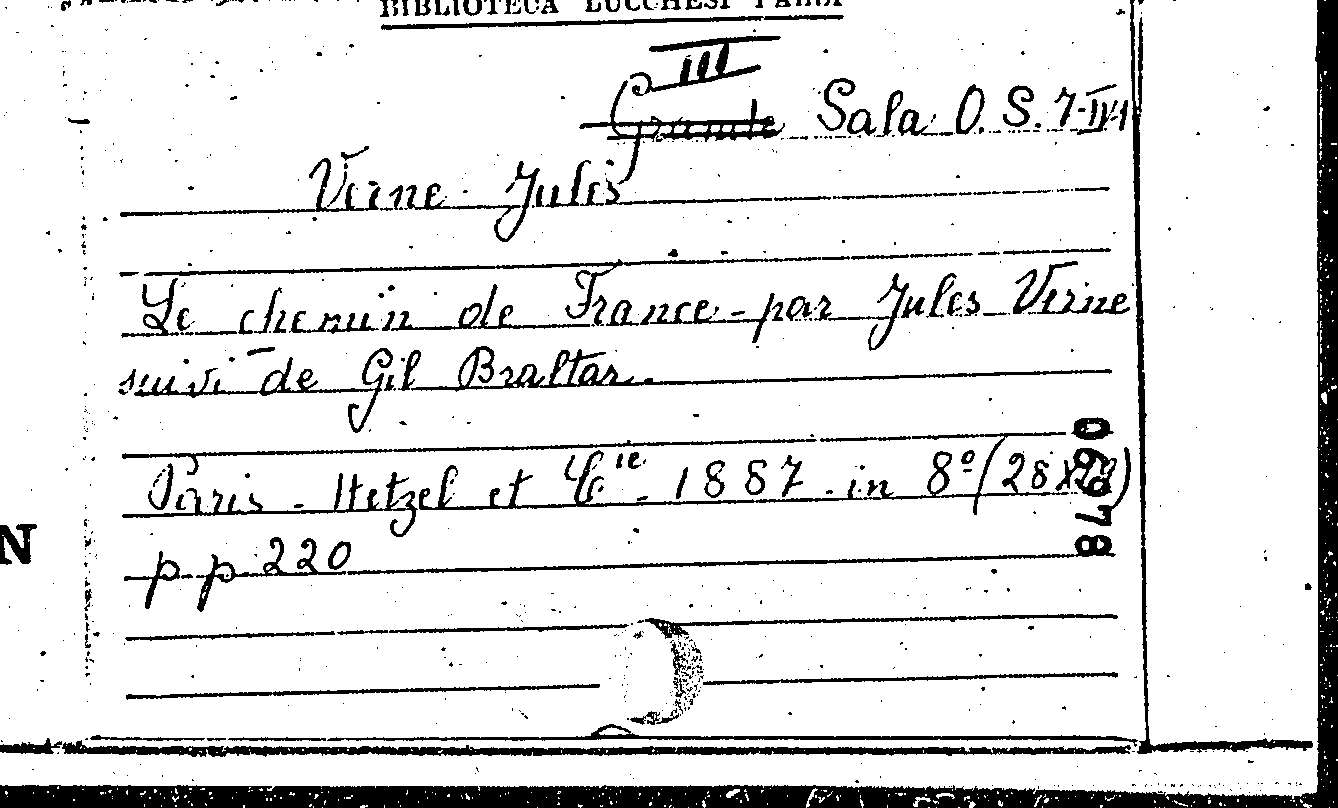 BIBLIOTECA LUCCHESI PALLI
III
Grande Sala O. S. 7-IV-1
Verne - Jules
Le chemin de France - par Jules Verne
suivi de Gil Braltar.
Paris - Hetzel et Cie - 1887 - in 8º (28
p p 220
06678
N